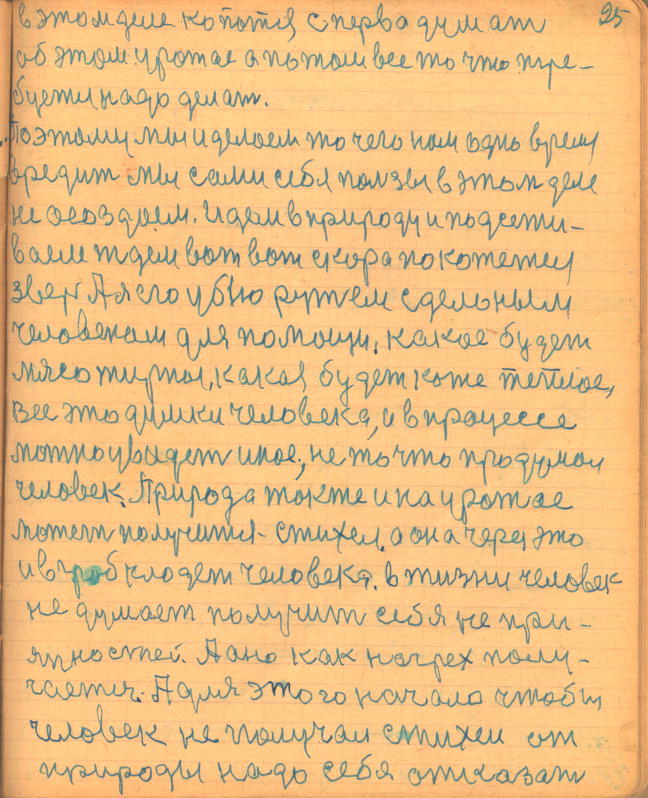 25
в этом деле копотся, сперва думат
об этом урожае а потом все то что тре-
буется надо делат.
Поэтому мы и делоем то чего ном одно время
вредит мы сами себя ползы в этом деле
не осоздоем. Идем в природу и подсежи-
ваем ждем вот вот скора покожется
звер А я его убю ружем сделоным
человеком для помощи, какое будет
мясо жирты, какая будет коже теплое,
все это думки человека, и в процессе
можно увидет иное, не то что продумол
человек. Природа токже и на урожае
можем получится стихея, а она через это
и в гроб кладет человека. в жизни человек
не думает получит себя не при-
ятностей. А оно как на грех полу-
чается. А для этого начало чтобы
человек не получал стихеи от
природы надо себя отказат